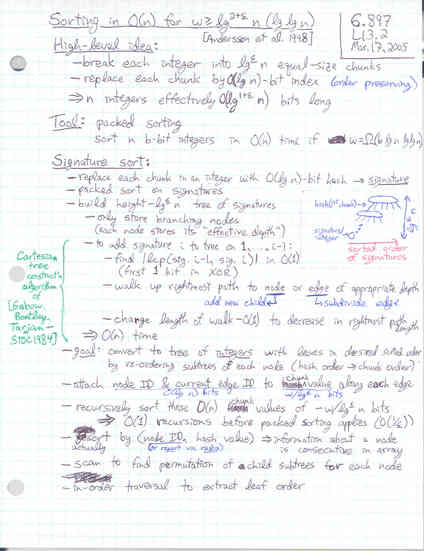 Sorting in O(n) for w ≥ lg^{2+ε} n (lg lg n)
[Andersson et al. 1998]
6.897
L13.2
Mar. 17, 2005
High-level idea:
- break each integer into lg^ε n equal-size chunks
- replace each chunk by O(lg n)-bit index (order preserving)
⇒ n integers effectively O(lg^{1+ε} n) bits long
Tool: packed sorting
sort n b-bit integers in O(n) time if w = Ω(b lg n lg lg n)
Signature sort:
- replace each chunk in an integer with O(lg n)-bit hash → signature
- packed sort on signatures
- build height-lg^ε n tree of signatures
- only store branching nodes
(each node stores its "effective depth")
- to add signature i to tree on 1, ..., i-1:
- find |lcp(sig. i-1, sig. i)| in O(1)
(first 1 bit in XOR)
- walk up rightmost path to node or edge of appropriate depth
add new child
subdivide edge
- change length of walk - O(1) to decrease in rightmost path length
⇒ O(n) time
sorted order
of signatures
Cartesian
tree
algorithm
of
[Gabow,
Bentley,
Tarjan -
STOC 1984]
- goal: convert to tree of integers with leaves in desired order
by re-ordering subtrees of each node (hash order → chunk order)
- attach node ID & current edge ID to chunk value along each edge
O(lg n) bits
w/lg^ε n bits
- recursively sort these O(n) values of ~w/lg^ε n bits
⇒ O(1) recursions before packed sorting applies (O(1/ε))
- sort by (node ID, hash value) ⇒ information about a node
actually
is consecutive in array
- scan to find permutation of child subtrees for each node
- in-order traversal to extract leaf order